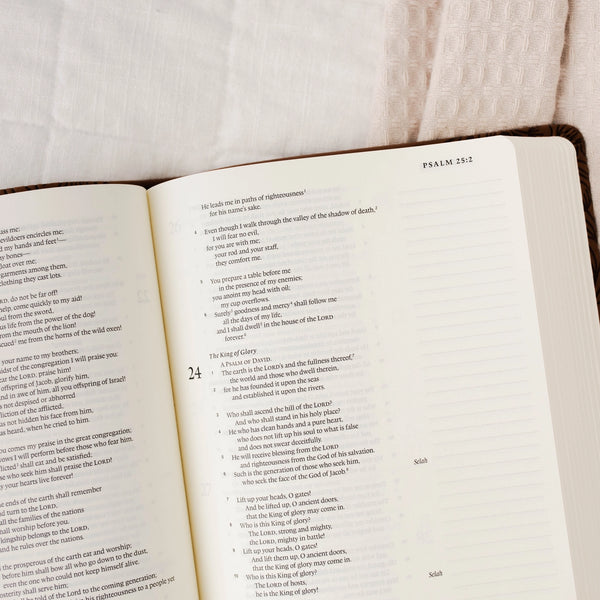 ass me;
evildoers encircle me;
d my hands and feet¹—
y bones—
loat over me;
garments among them,
clothing they cast lots.
RD, do not be far off!
help, come quickly to my aid!
oul from the sword,
us life from the power of the dog!
from the mouth of the lion!
scued² me from the horns of the wild oxen!
your name to my brothers;
idst of the congregation I will praise you:
ear the LORD, praise him!
offspring of Jacob, glorify him,
nd in awe of him, all you offspring of Israel!
s not despised or abhorred
fliction of the afflicted,
as not hidden his face from him,
as heard, when he cried to him.
ou comes my praise in the great congregation;
ows I will perform before those who fear him.
licted³ shall eat and be satisfied;
se who seek him shall praise the LORD!
your hearts live forever!
he ends of the earth shall remember
nd turn to the LORD,
all the families of the nations
hall worship before you.
kingship belongs to the LORD,
nd he rules over the nations.
the prosperous of the earth eat and worship;
before him shall bow all who go down to the dust,
even the one who could not keep himself alive.
osterity shall serve him;
be told of the Lord to the coming generation;
his righteousness to a people yet
PSALM 25:2
He leads me in paths of righteousness¹
for his name's sake.
4 Even though I walk through the valley of the shadow of death,²
I will fear no evil,
for you are with me;
your rod and your staff,
they comfort me.
5 You prepare a table before me
in the presence of my enemies;
you anoint my head with oil;
my cup overflows.
6 Surely³ goodness and mercy⁴ shall follow me
all the days of my life,
and I shall dwell⁵ in the house of the LORD
forever.⁶
The King of Glory
A PSALM OF DAVID.
24 1 The earth is the LORD's and the fullness thereof,⁷
the world and those who dwell therein,
2 for he has founded it upon the seas
and established it upon the rivers.
3 Who shall ascend the hill of the LORD?
And who shall stand in his holy place?
4 He who has clean hands and a pure heart,
who does not lift up his soul to what is false
and does not swear deceitfully.
5 He will receive blessing from the LORD
and righteousness from the God of his salvation.
6 Such is the generation of those who seek him,
who seek the face of the God of Jacob.⁸
Selah
7 Lift up your heads, O gates!
And be lifted up, O ancient doors,
that the King of glory may come in.
8 Who is this King of glory?
The LORD, strong and mighty,
the LORD, mighty in battle!
9 Lift up your heads, O gates!
And lift them up, O ancient doors,
that the King of glory may come in.
10 Who is this King of glory?
The LORD of hosts,
he is the King of glory!
Selah